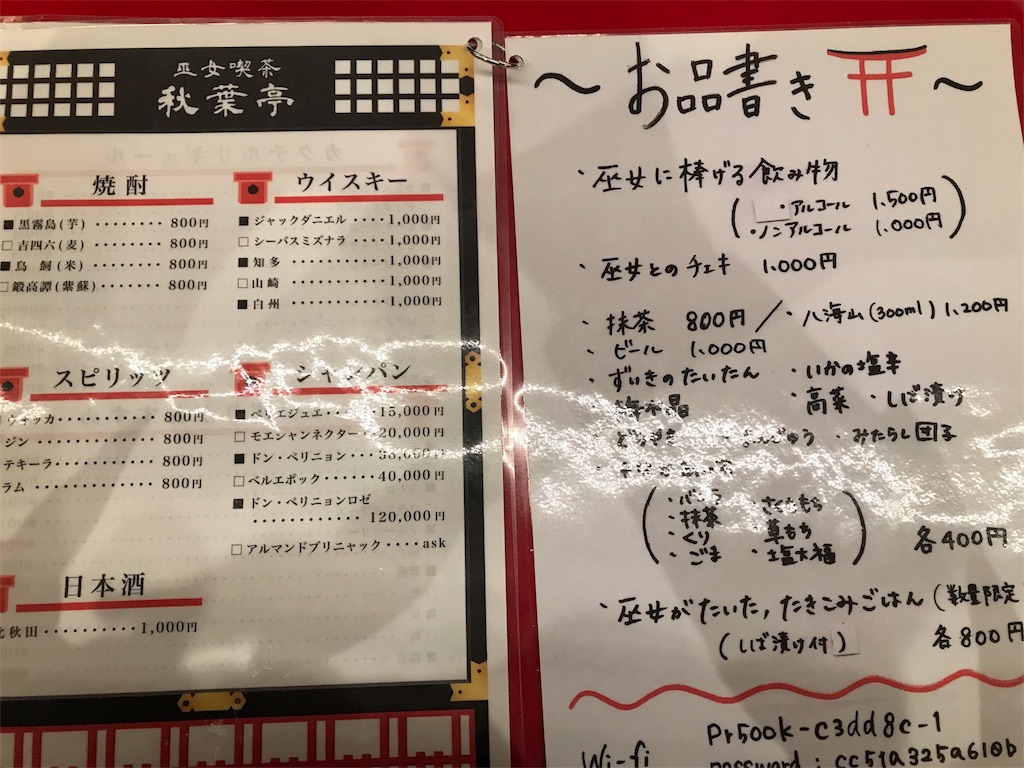 巫女喫茶
秋葉亭
焼酎
■黒霧島(芋)・・・・・・・・・800円
□吉四六(麦)・・・・・・・・800円
■鳥飼(米)・・・・・・・・800円
□鍛高譚(紫蘇)・・・・・・・800円
ウイスキー
■ジャックダニエル・・・・1,000円
□シーバスミズナラ・・・・1,000円
■知多・・・・・・・・・・・・1,000円
□山崎・・・・・・・・・・・・1,000円
■白州・・・・・・・・・・・・1,000円
スピリッツ
ウォッカ・・・・・・・・・・・・800円
ジン・・・・・・・・・・・・・・800円
テキーラ・・・・・・・・・・・・800円
ラム・・・・・・・・・・・・・・800円
シャンパン
■ペリエジュエ・・・・15,000円
□モエシャンネクター・・20,000円
■ドン・ペリニョン
□ベルエポック・・・・・・40,000円
■ドン・ペリニョンロゼ
・・・・・・・・・・・・120,000円
□アルマンドブリニャック・・・・ask
日本酒
北秋田・・・・・・・・・・1,000円
〜お品書き〜
・巫女に棒げる飲み物
(・アルコール 1,500円
・ノンアルコール 1,000円)
・巫女とのチェキ 1,000円
・抹茶 800円/・八海山(300ml) 1,200円
・ビール 1,000円
・ずいきのたいたん ・いかの塩辛
・高菜 ・しば漬け
・みたらし団子
・抹茶 ・草もち
・くり ・塩大福
・ごま
各400円
・巫女がたいた,たきこみごはん(数量限定
(しば漬け付) 各800円
Wi-fi
Pr500k-c3dd8c-1
password : cc51a325a610b